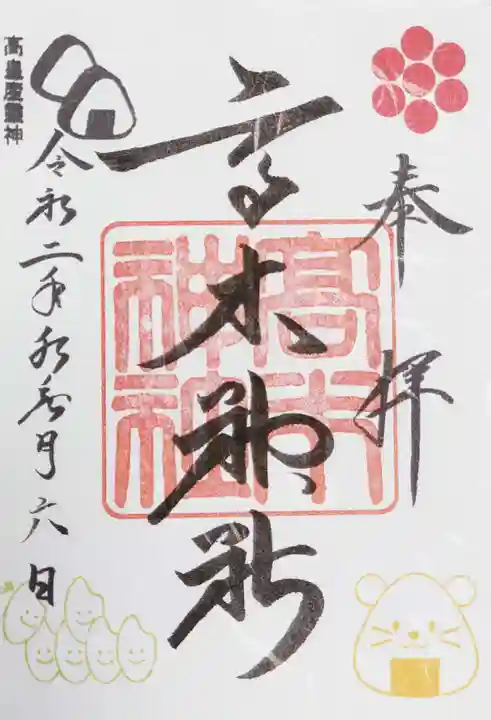 奉拝
高木神社
高木
神社
令和二年水無月六日
高皇産靈神